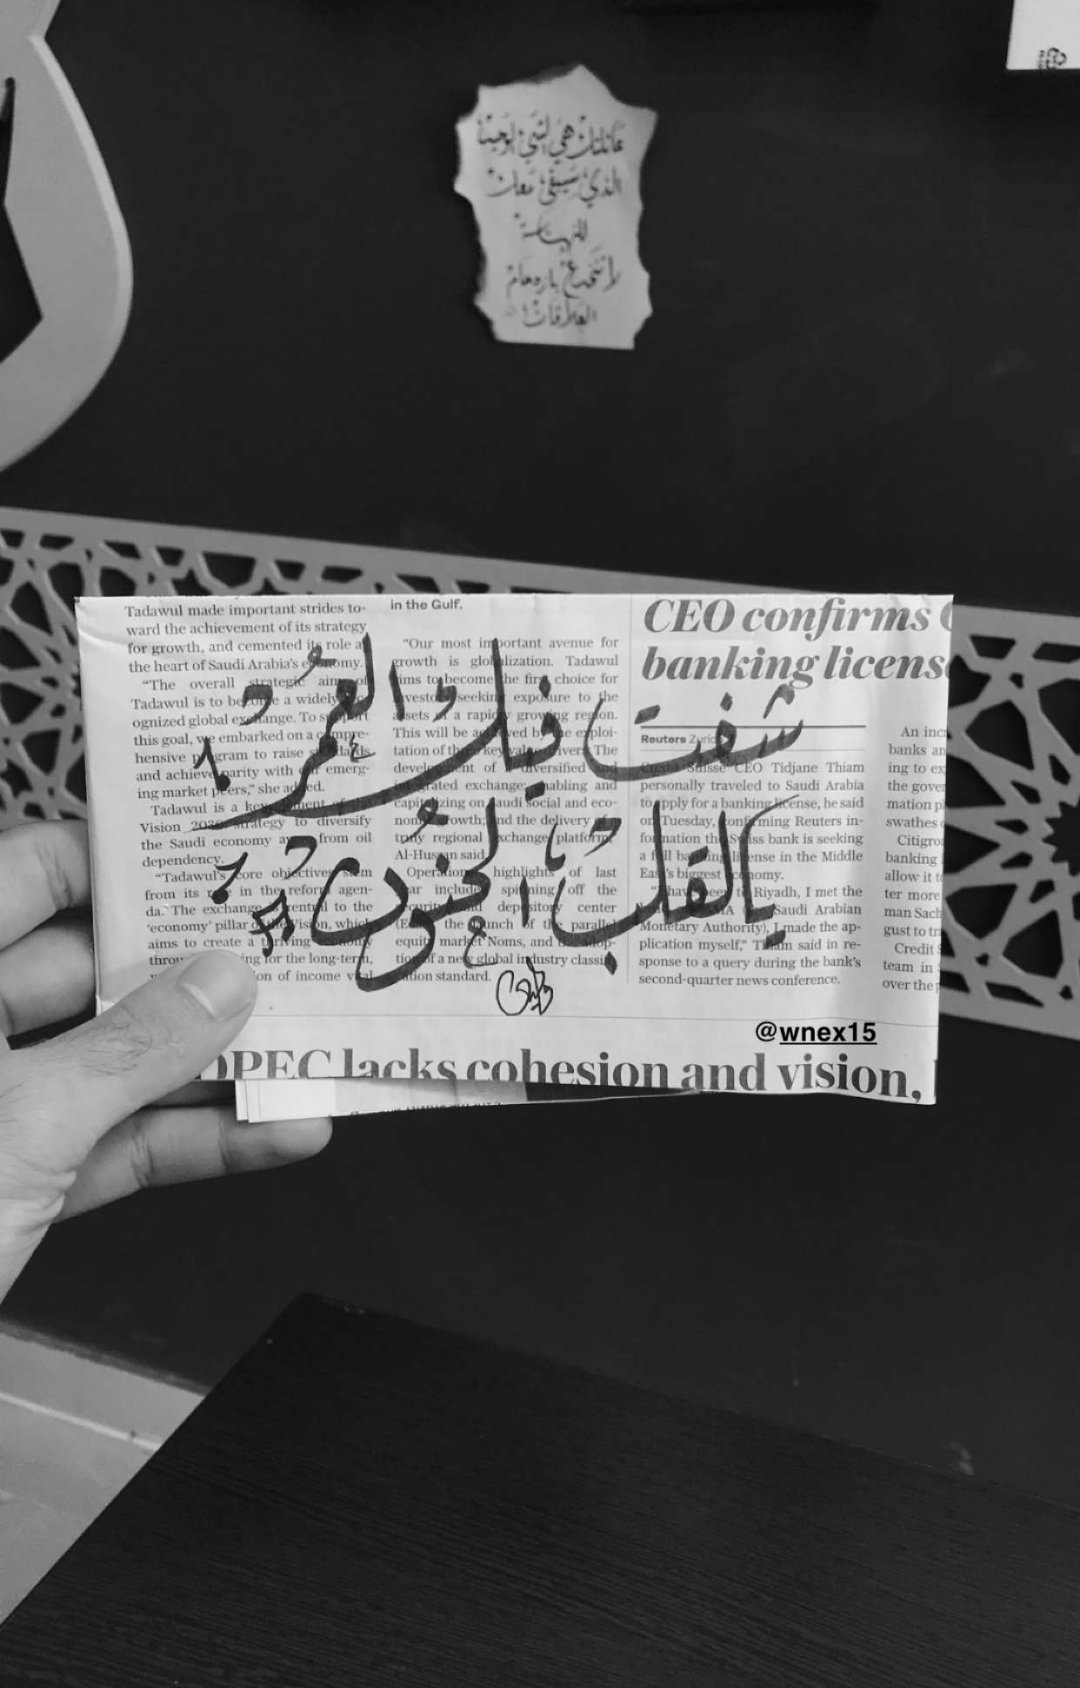 عائلتك هي الشيء الوحيد
الذي سيبقى معك
للنهاية
لا تنخدع بازدحام
العلاقات
شفت فيك العمر
يالقلب الحنون
in the Gulf.
Tadawul made important strides to-
ward the achievement of its strategy
for growth, and cemented its role at
the heart of Saudi Arabia's economy.
"The overall strategic aim of
Tadawul is to become a widely rec-
ognized global exchange. To support
this goal, we embarked on a compre-
hensive program to raise standards
and achieve parity with our emerg-
ing market peers," she added.
Tadawul is a key element of the
Vision 2030 strategy to diversify
the Saudi economy away from oil
dependency.
"Tadawul's core objectives stem
from its role in the reform agen-
da. The exchange is central to the
'economy' pillar of the Vision, which
aims to create a thriving economy
ing for the long-term,
on of income
"Our most important avenue for
growth is globalization. Tadawul
aims to become the first choice for
investors seeking exposure to the
assets of a rapidly growing region.
This will be achieved by the exploi-
tation of three key value drivers: The
development of a diversified and
integrated exchange; enabling and
capitalizing on Saudi social and eco-
nomic growth; and the delivery of a
truly regional exchange platform,"
Al-Husan said.
Operational highlights of last
year include spinning off the
security and depository center
the launch of the parallel
equity market Nomu, and the adop-
tion of a new global industry classifi-
cation standard.
CEO confirms
banking licens
Reuters Zurich
Credit Suisse CEO Tidjane Thiam
personally traveled to Saudi Arabia
to apply for a banking license, he said
on Tuesday, confirming Reuters in-
formation the Swiss bank is seeking
a full banking license in the Middle
East's biggest economy.
"I have been to Riyadh, I met the
Saudi Arabian
Monetary Authority), I made the ap-
plication myself," Thiam said in re-
sponse to a query during the bank's
second-quarter news conference.
An incr
banks an
ing to ex
the gover
mation pl
swathes
Citigro
banking
allow it t
ter more
man Sach
gust to tr
Credit S
team in
over the
@wnex15
OPEC lacks cohesion and vision,